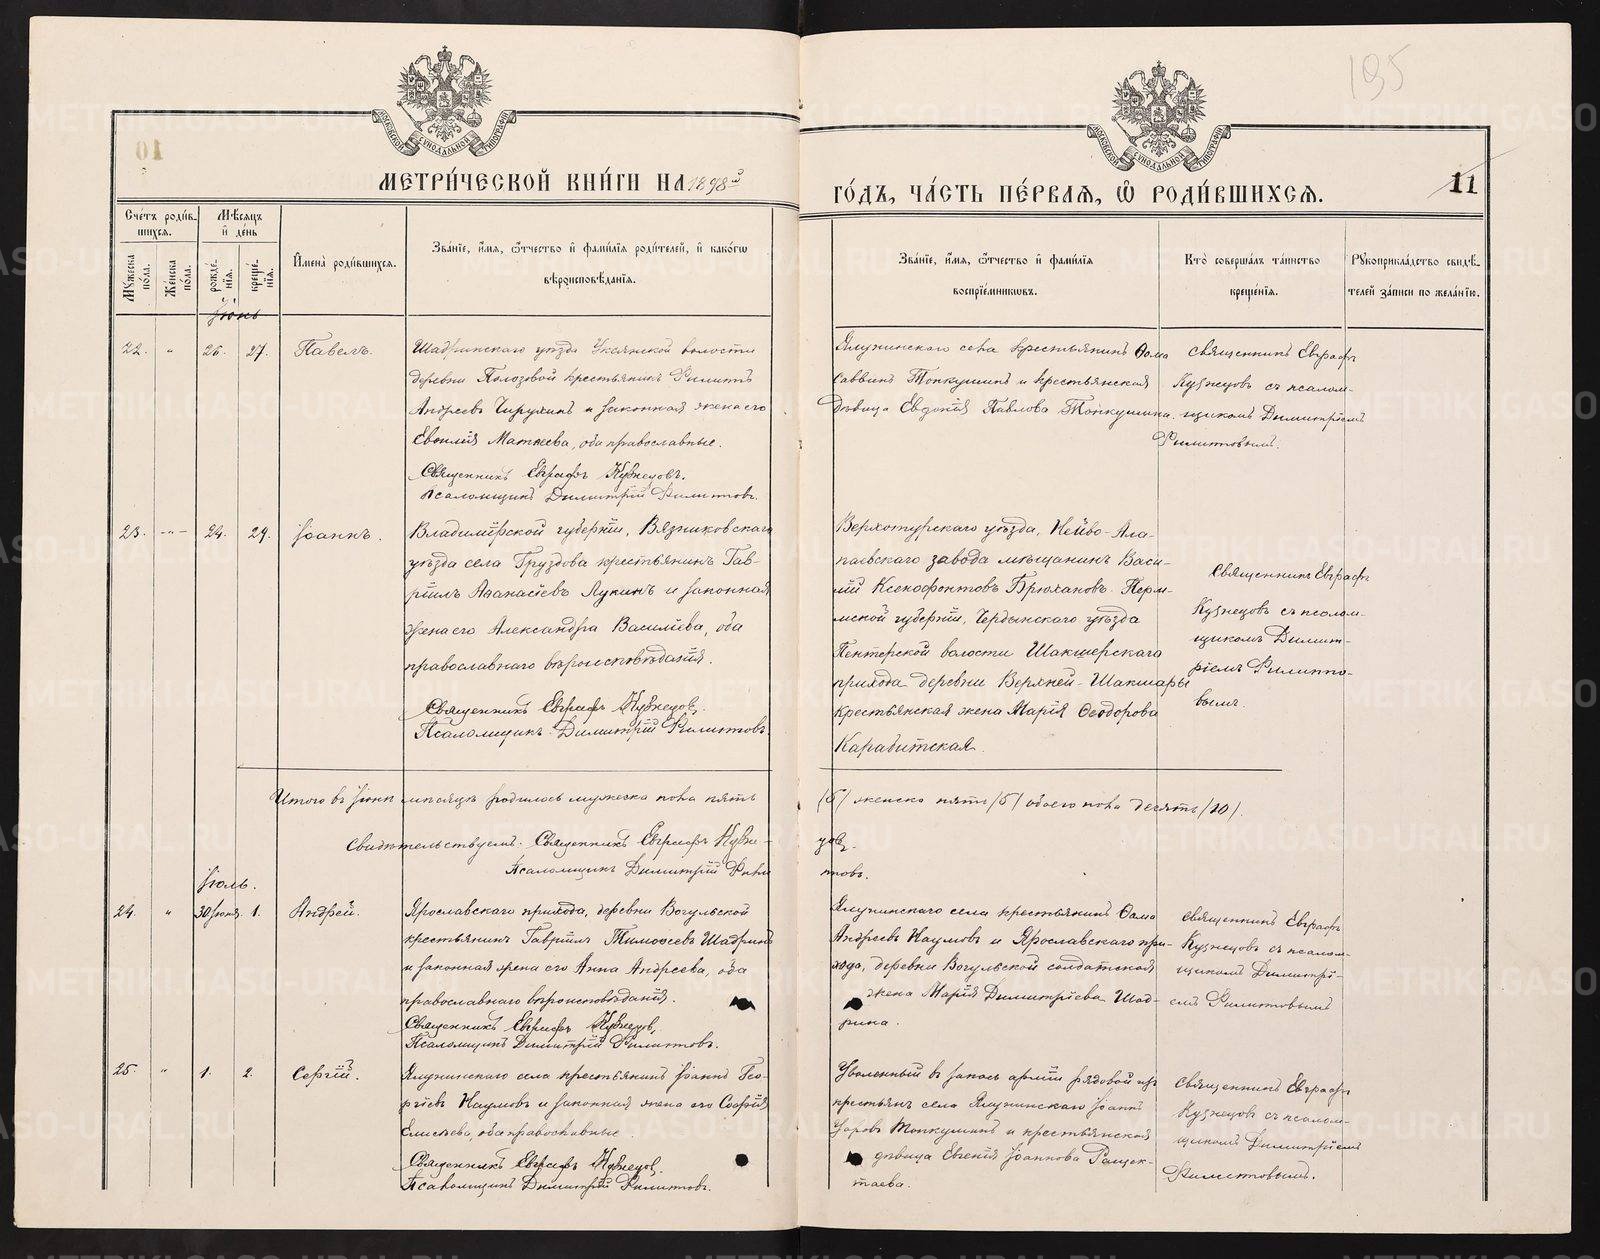 195
10
МЕТРИ́ЧЕСКОЙ КНИ́ГИ НА 1898й
ГО́ДЪ, ЧА́СТЬ ПЕ́РВАЯ, Ѡ҆ РОДИ́ВШИХСЯ.
11
Сче́тъ роди́в-
шихся.
Мѣ́сяцъ
и҆ де́нь
Мꙋжеска по́ла.
Же́нска по́ла.
рожде́-
нїя.
креще́-
нїя.
И҆мена̀ роди́вшихся.
Зва́нїе, и҆́мя, ѻ҆́тчество и҆ фами́лїя роди́телей, и҆ како́гѡ
вѣроисповѣ́данїя.
Зва́нїе, и҆́мя, ѻ҆́тчество и҆ фами́лїя
воспрїе́мникѡвъ.
Кто̀ соверша́лъ та́инство
креще́нїя.
Рꙋкоприкла́дство свидѣ́-
телей за́писи по жела́нїю.
Іюнь
22. " 26. 27. Павелъ.
Шадринскаго уѣзда Уксянской волости
деревни Полозовой крестьянинъ Филиппъ
Андреевъ Чирухинъ и законная жена его
Матвеева, оба православные.
Священникъ Евграфъ Кузнецовъ.
Псаломщикъ Димитрій Филипповъ.
Ялунинскаго села крестьянинъ Ѳома
Саввинъ Топкушинъ и крестьянская
дѣвица Евдокія Павлова Топкушина.
Священникъ Евграфъ
Кузнецовъ съ псалом-
щикомъ Димитріемъ
Филипповымъ.
23. 24. 29. Іоаннъ.
Владимірской губерніи, Вязниковскаго
уѣзда села Груздова крестьянинъ Гав-
ріилъ Аѳанасіевъ Лукинъ и законная
жена его Александра Василіева, оба
православнаго вѣроисповѣданія.
Священникъ Евграфъ Кузнецовъ.
Псаломщикъ Димитрій Филипповъ.
Верхотурскаго уѣзда, Нейво-Ала-
паевскаго завода мѣщанинъ Васи-
лій Ксенофонтовъ Брюхановъ. Перм-
мской губерніи, Чердынскаго уѣзда
Пентерской волости Шакшерскаго
прихода деревни Верхней-Шакшеры
крестьянская жена Марія Ѳеодорова
Карабитская.
Священникъ Евграфъ
Кузнецовъ съ псалом-
щикомъ Димит-
ріемъ Филиппо-
вымъ.
Итого въ Іюнѣ мѣсяцѣ родилось мужеска пола пять
/5/ женска пять /5/ обоего пола десять /10/.
Свидѣтельствуемъ: Священникъ Евграфъ Кузне-
цовъ.
Псаломщикъ Димитрій Филип
повъ.
Іюль.
24. " 30 Іюня. 1. Андрей.
Ярославскаго прихода, деревни Вогульской
крестьянинъ Гавріилъ Тимоѳеевъ Шадринъ
и законная жена его Анна Андреева, оба
православнаго вѣроисповѣданія.
Священникъ Евграфъ Кузнецовъ,
Псаломщикъ Димитрій Филипповъ.
Ялунинскаго села крестьянинъ Ѳома
Андреевъ Наумовъ и Ярославскаго при-
хода, деревни Вогульской солдатская
жена Марія Димитріева Шад-
рина.
Священникъ Евграфъ
Кузнецовъ съ псалом-
щикомъ Димитрі-
емъ Филипповымъ
25. " 1. 2. Сергій.
Ялунинскаго села крестьянинъ Іоаннъ Гео-
ргіевъ Наумовъ и законная жена его Софія
Елисеева, оба православные.
Священникъ Евграфъ Кузнецовъ.
Псаломщикъ Димитрій Филипповъ.
Уволенный въ запасъ арміи рядовой изъ
крестьянъ села Ялунинскаго Іоаннъ
Топкушинъ и крестьянская
дѣвица Евгенія Іоаннова Ращек-
таева.
Священникъ Евграфъ
Кузнецовъ съ псалом-
щикомъ Димитріемъ
Филипповымъ.
METRIKI.GASO-URAL.RU